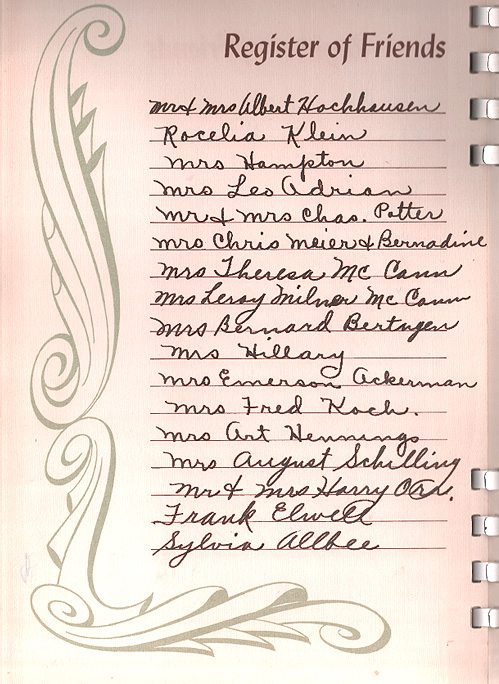 Register of Friends
Mr & Mrs Albert Hochhausen
Rocelia Klein
Mrs Hampton
Mrs Leo Adrian
Mr & Mrs Chas. Potter
Mrs Chris Meier & Bernadine
Mrs Theresa Mc Cann
Mrs Leroy Milner Mc Cann
Mrs Bernard Bertngen
Mrs Hillary
Mrs Emerson Ackerman
Mrs Fred Koch.
Mrs Art Hennings
Mrs August Schilling
Mr & Mrs Harry Orr.
Frank Elwell
Sylvia Allbee